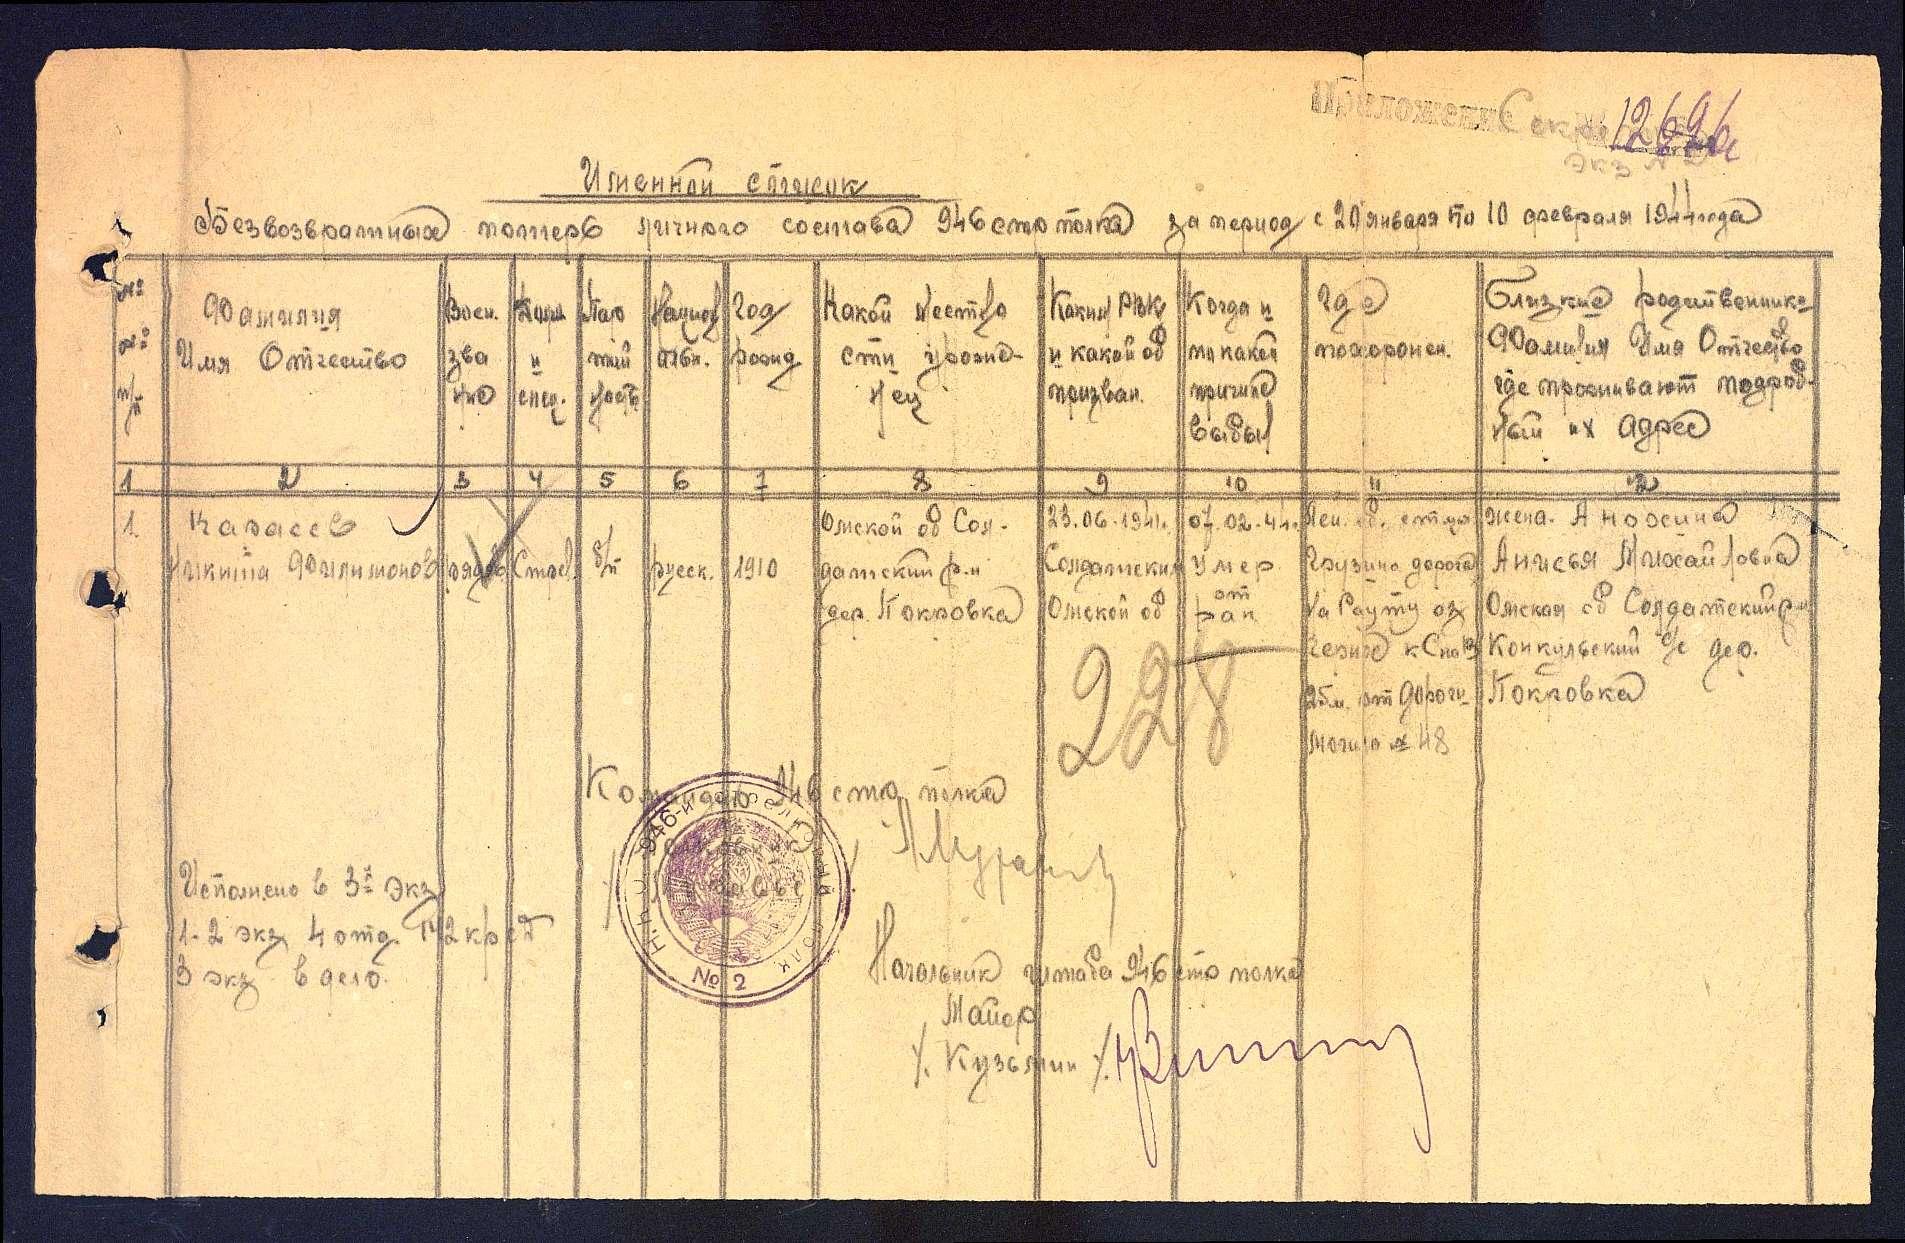 Приложение Секр 12696с
Экз №
Именной список
Безвозвратных потерь личного состава 946 стр полка за период с 20 января по 10 февраля 1944 года
№№ п/п
Фамилия
Имя Отчество
Воен.
зва
ние
Долж
и
спец.
Пар
тий
ность
Национ
альн.
Год
рожд
Какой местно
сти урожд-
нец
Каким РВК
и какой об
призван.
Когда и
по какой
причине
выбыл
Где
похоронен.
Близкие родственники
Фамилия Имя Отчество
где проживают подроб-
ный их адрес
1 2 3 4 5 6 7 8 9 10 11 12
1.
Карасев
Никита Филимонов
рядов
Стрел.
б/п
русск.
1910
Омской об Сол-
датский р-н
дер. Покровка
23.06.1941г.
Солдатским
Омской об
07.02.44г.
Умер
от
ран
Лен. об. ст
Грузино дорога
На
к С
25м. от дороги
могила № 48
жена. Анохина
Анисья Михайловна
Омская об Солдатский р-н
Конкульский с/с дер.
Покровка
228
Командир 946 стр полка
946-й стрелковый полк
№ 2
Исполнено в 3х экз
1-2 экз 4 отд
3 экз в дело.
Начальник штаба 946 стр полка
Майор
/. Кузьмин /.